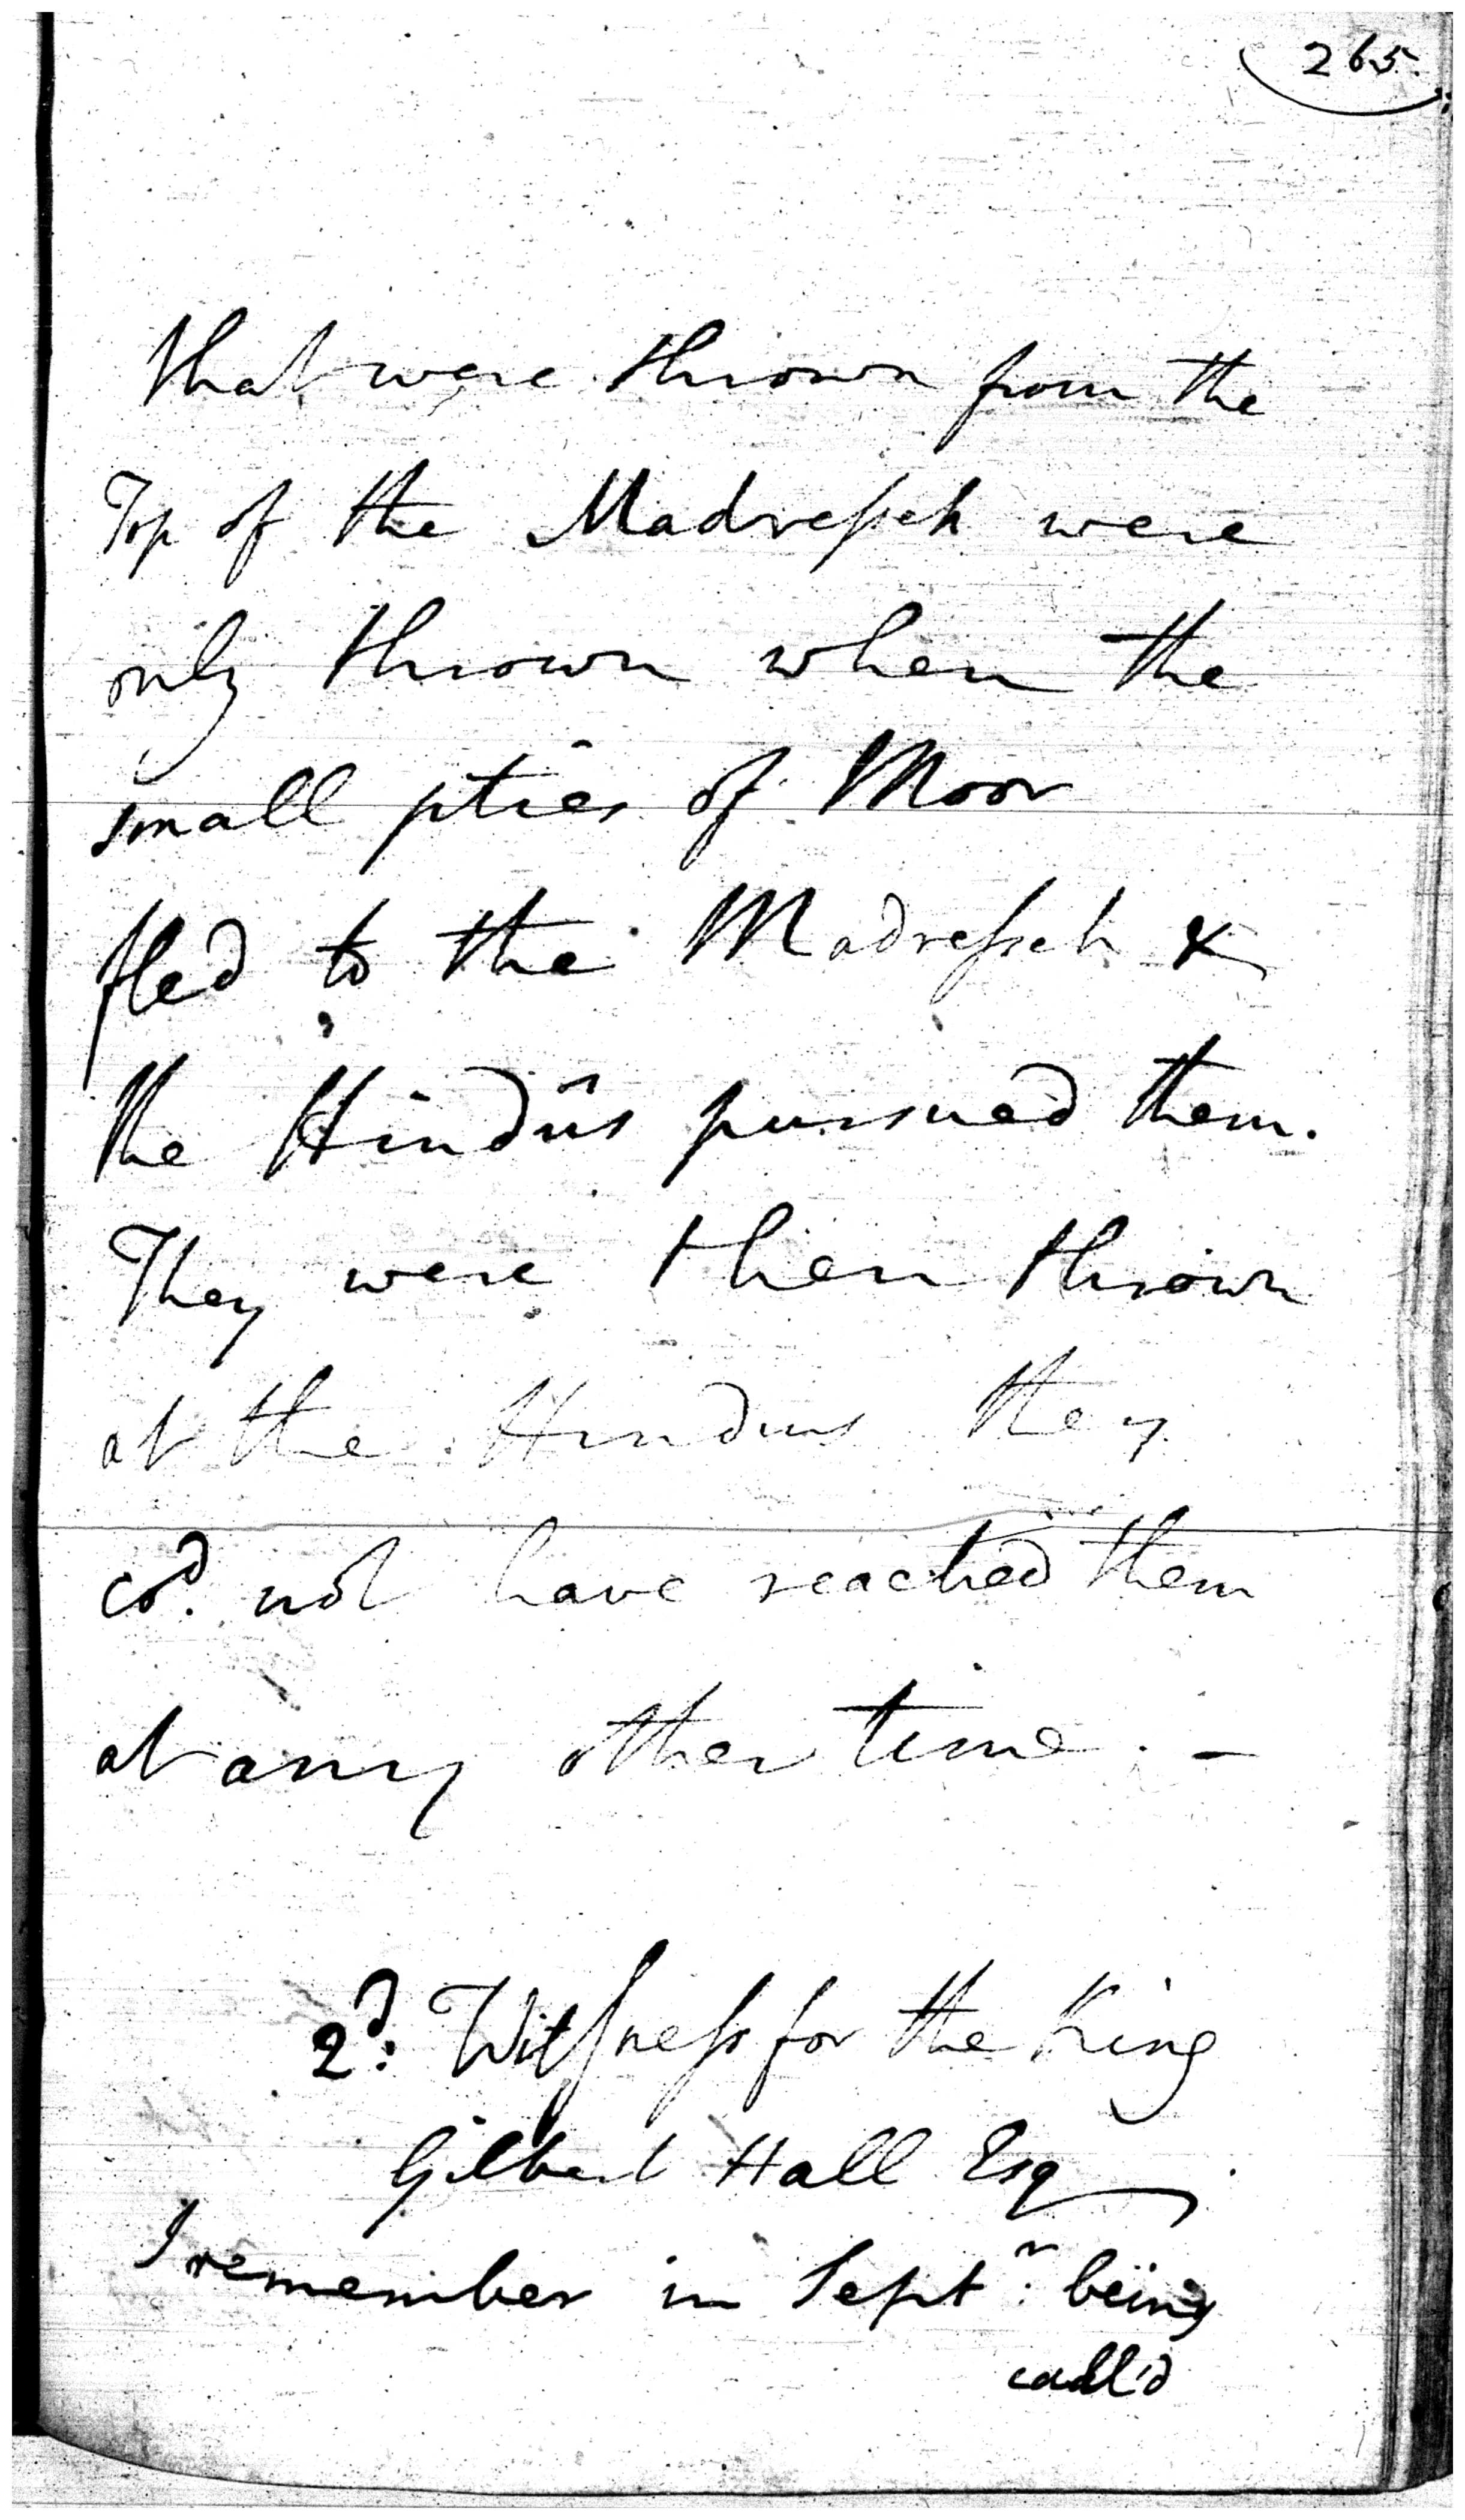 265.
that were thrown from the
Top of the Madresseh were
only thrown when the
small pties of Moor
fled to the Madresseh &
the Hindûs pursued them.
They were then thrown
at the Hindus they
cod. not have reached them
at any other time. –
2d: Witsness for the King
Gilbert Hall Esq
I remember in Septr. being
call'd